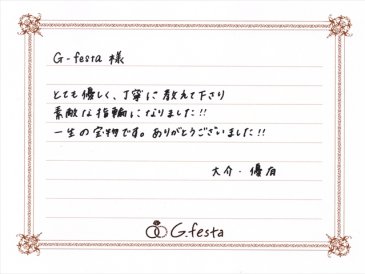 G-festa 様
とても優しく、丁寧に教えて下さり
素敵な指輪になりました!!
一生の宝物です。ありがとうございました!!
大介・優有
G.festa